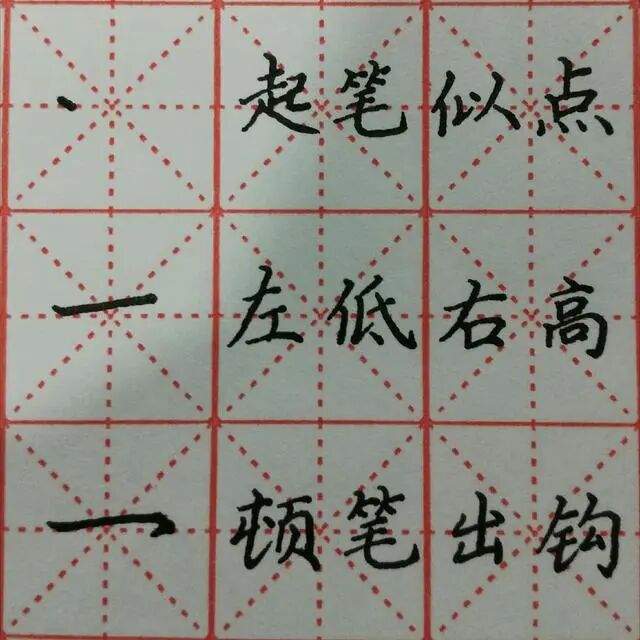 丶 起笔似点
一 左低右高
乛 顿笔出钩